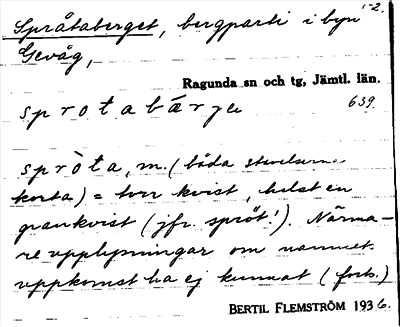 1-2.
Språtaberget, bergparti i byn
Gevåg,
Ragunda sn och tg, Jämtl. län.
sprotabärje 639.
spròta, m. (båda stavelserna
korta) = torr kvist, helst en
grankvist (jfr spröt!). Närma-
re upplysningar om namnet
uppkomst ha ej kunnat (forts.)
BERTIL FLEMSTRÖM 1936.